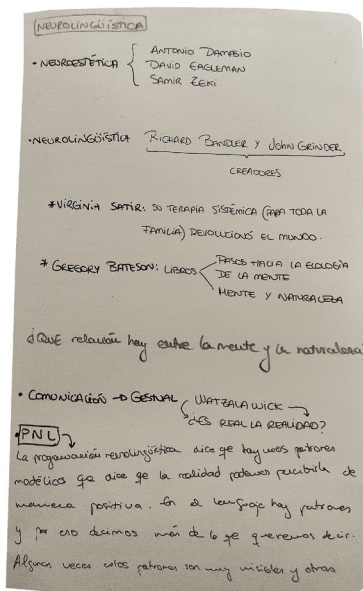 NEUROLINGÜÍSTICA
• NEUROESTÉTICA { ANTONIO DAMASIO
DAVID EAGLEMAN
SAMIR ZEKI
• NEUROLINGÜÍSTICA RICHARD BANDLER Y JOHN GRINDER
CREADORES
* VIRGINIA SATIR: SU TERAPIA SISTÉMICA (PARA TODA LA
FAMILIA) REVOLUCIONÓ EL MUNDO.
* GREGORY BATESON: LIBROS < PASOS HACIA LA ECOLOGÍA
DE LA MENTE
MENTE Y NATURALEZA
¿QUÉ relación hay entre la mente y la naturaleza
• COMUNICACIÓN → GESTUAL WATZALAWICK →
¿ES REAL LA REALIDAD?
• PNL
La programación neurolingüística dice qe hay unos patrones
modélicos qe dice qe la realidad podemos percibirla de
manera positiva. En el lenguaje hay patrones
y por eso decimos más de lo qe queremos decir.
Algunas veces estos patrones son muy visibles y otras